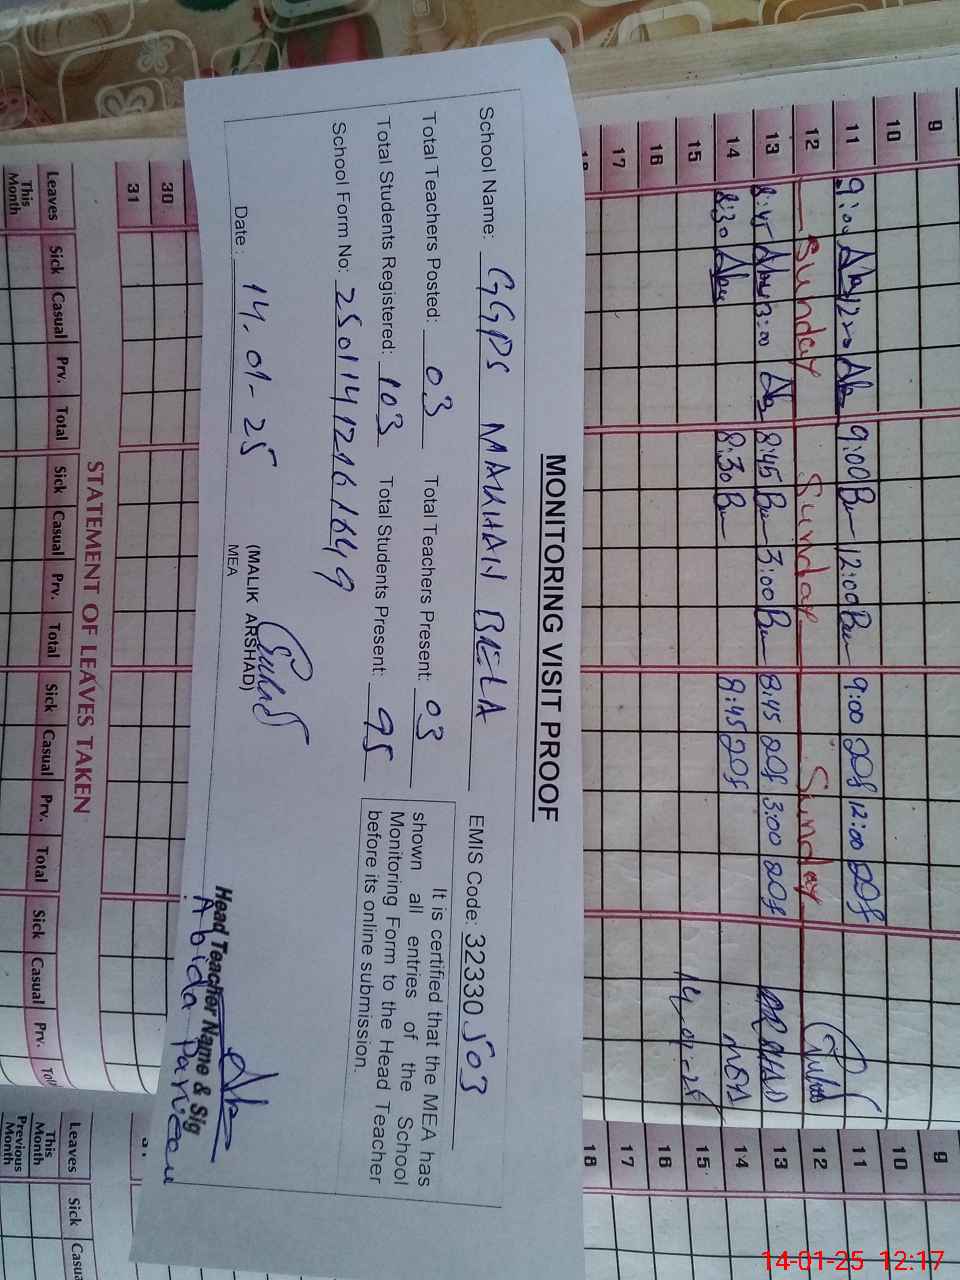 9
10
11 9:00 12:00 9:00 12:00 9:00 12:00 11
12 Sunday Sunday Sunday 12
13 8:45 3:00 8:45 3:00 8:45 3:00 ARSHAD 13
14 8:30 8:30 8:45 MEA 14
15 14-01-25 15
16 16
17 17
18 18
MONITORING VISIT PROOF
School Name: GGPS MAKHAN BAELA EMIS Code: 32330503
Total Teachers Posted: 03 Total Teachers Present: 03
Total Students Registered: 103 Total Students Present: 95
School Form No:
It is certified that the MEA has
shown all entries of the School
Monitoring Form to the Head Teacher
before its online submission.
Date: 14.01-25
(MALIK ARSHAD)
MEA
Head Teacher Name & Sig
Abida Parveen
30
31
STATEMENT OF LEAVES TAKEN
Leaves Sick Casual Prv. Total Sick Casual Prv. Total Sick Casual Prv. Total Sick Casual Prv. Leaves Sick
This Month
This Month
Previous Month
9
10
14-01-25 12:17